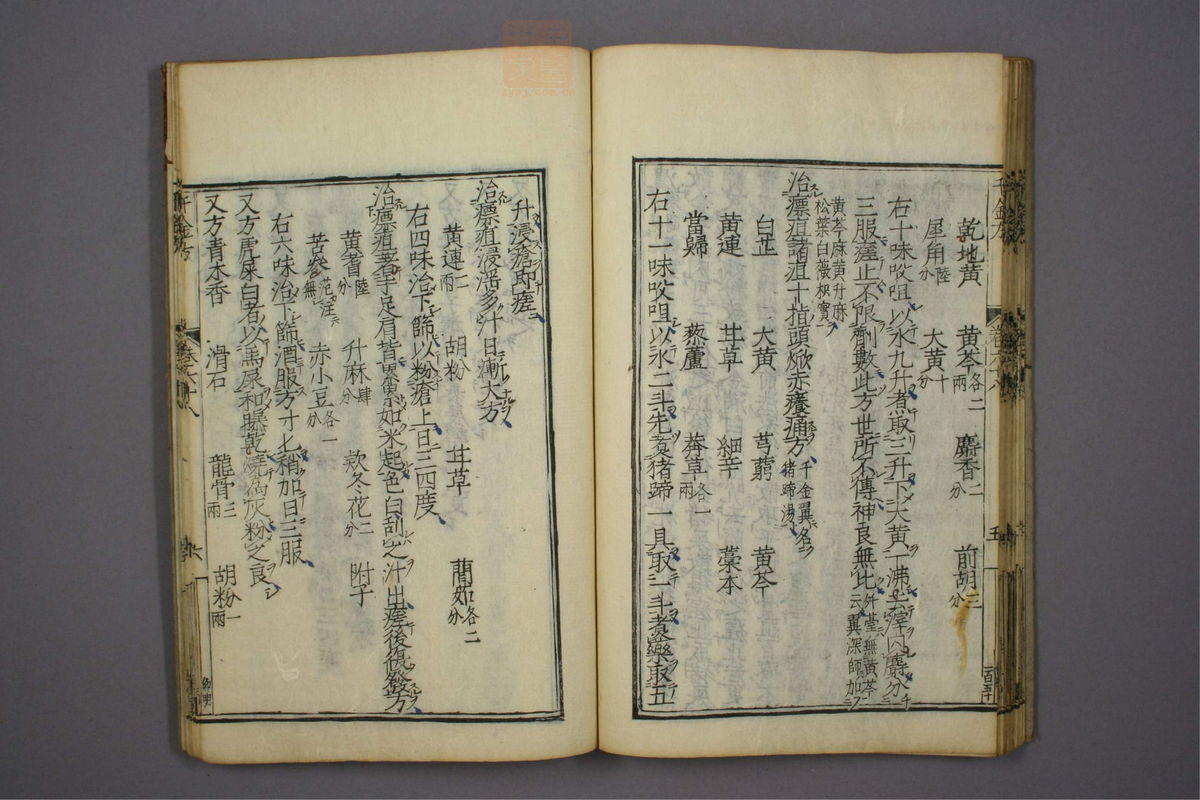 乾地黄　黄芩各二兩　麝香二分　前胡三分
犀角陸分　大黄十分
右十味㕮咀以水九升煮取三升下大黄一沸去滓内麝分
三服瘥止不限劑數此方世所不傳神良無比外臺無黄芩云翼深師加
黄芩麻黄升麻松葉白薇枳實
治瘭疽諸疽十指頭焮赤癢痛方千金翼名猪蹄湯
白芷　大黄　芎藭　黄芩
黄連　甘草　細辛　藁本
當歸　藜蘆　莽草各一兩
右十一味㕮咀以水二斗先煮猪蹄一具取一斗煮藥取五
升浸瘡即瘥
治瘭疽浸淫多汁日漸大方
黄連二兩　胡粉　甘草　䕡茹各二分
右四味治下篩以粉瘡上日三四度
治瘭疽著手足肩背累累如米起色白刮之汁出瘥後復發方
黄耆陸分　升麻肆分　欵冬花二分　附子
苦參范汪無　赤小豆各一分
右六味治下篩酒服方寸匕稍加日三服
又方虎屎白者以馬尿和曝乾燒為灰粉之良
又方青木香　滑石　龍骨三兩　胡粉一兩